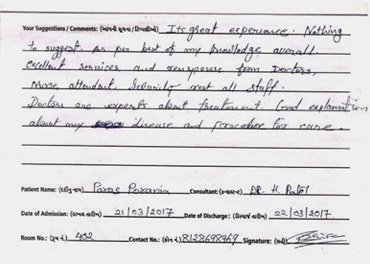 Your Suggestions / Comments: (આપની સૂચના / ટિપ્પણીઓ) Its great experiance. Nothing
to suggest as per best of my knowledge overall
excellent services and response from Doctors,
Nurse, attendant, Security rest all staff.
Doctors are experts about treatment Good explanation
about my disease and procedure for cure.
Patient Name: (દર્દીનું નામ) Paras Pozania Consultant: DR. H. Patel
Date of Admission: (દાખલ તારીખ) 21/03/2017 Date of Discharge: 22/03/2017
Room No.: (રૂમ નં.) 402 Contact No.: (ફોન નં.) 8128698969 Signature: (સહી)